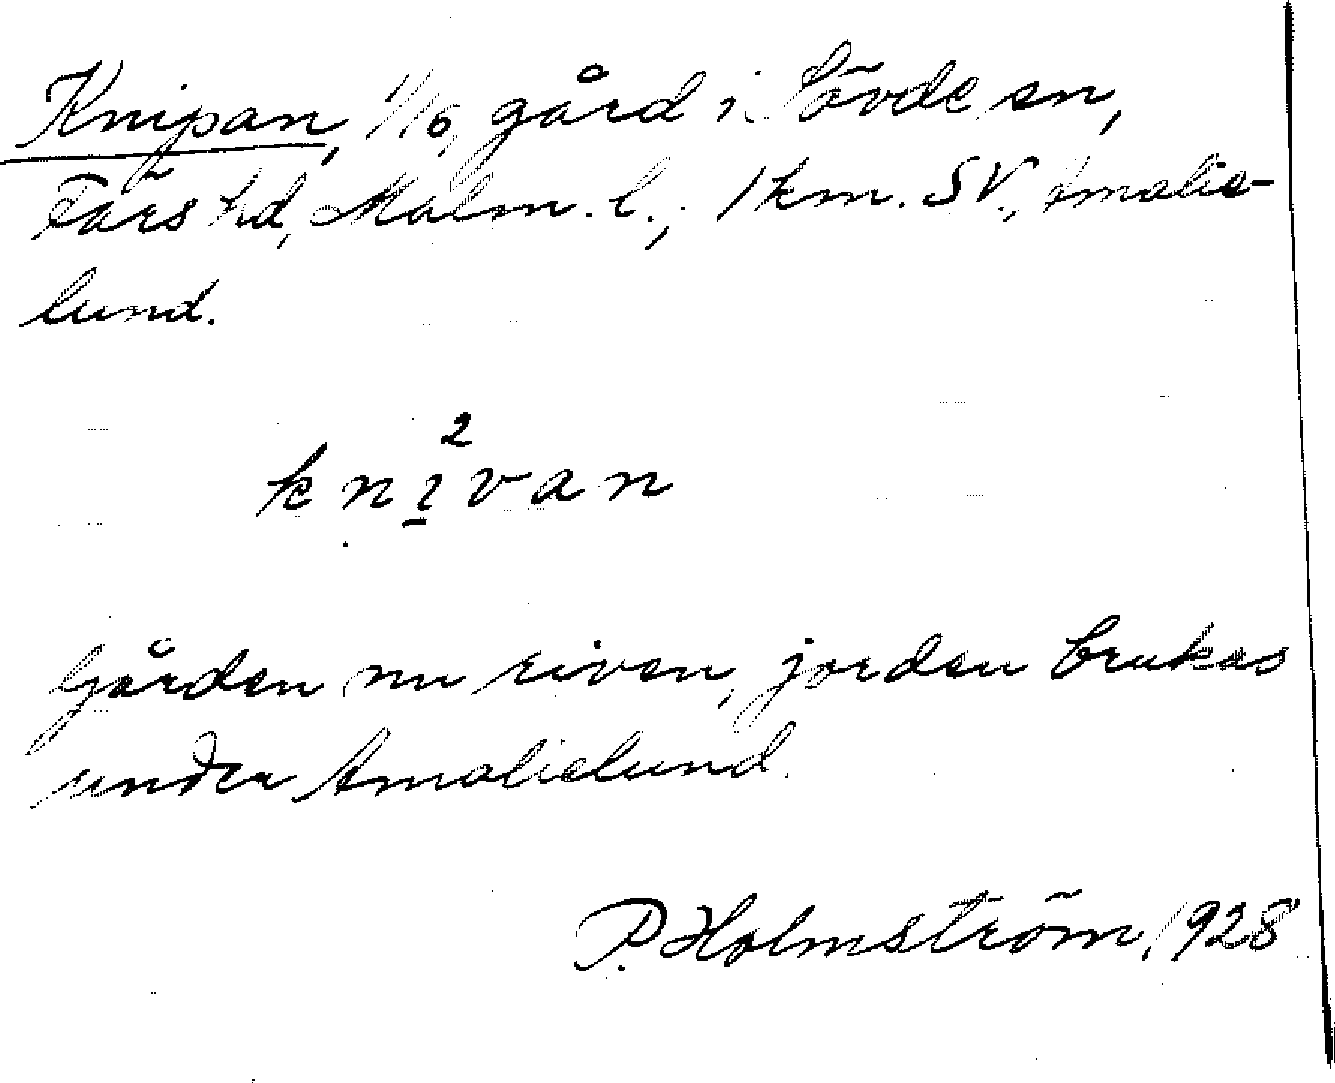 Knipan, 1/16 gård i Sövde sn,
Färs hd, Malm. l., 1 km. SV, Amalie-
lund.
2
knivan
Gården nu riven, jorden brukas
under Amalielund.
P. Holmström, 1928